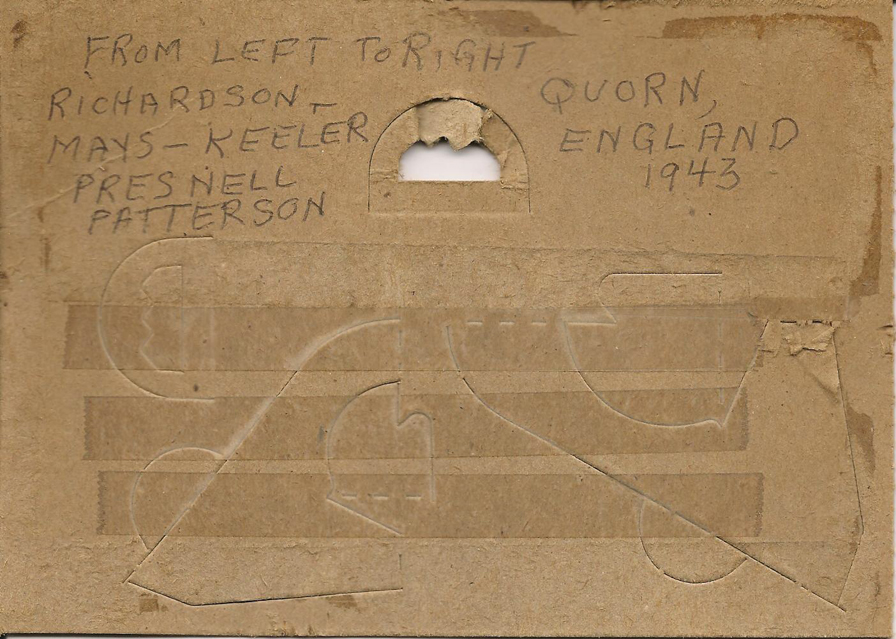 FROM LEFT TO RIGHT
RICHARDSON -
MAYS - KEELER
PRESNELL
PATTERSON
QUORN,
ENGLAND
1943